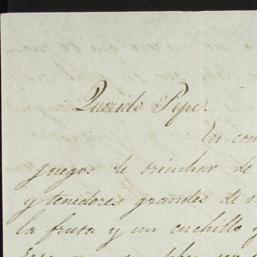 Querido Pepe.
En con
juegos de trinchar de
y tenedores grandes de
la fruta y un cuchillo y